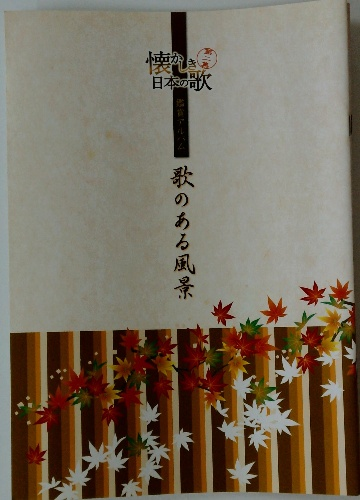 懐かしき
日本の歌
第二巻
歌のある風景